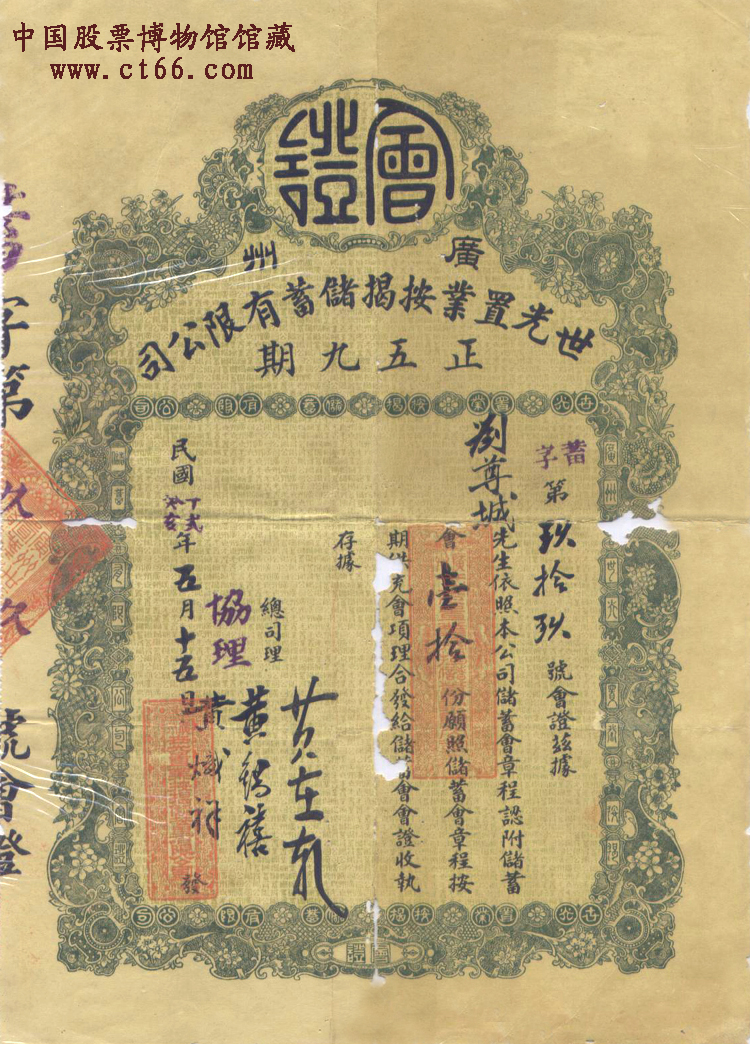 中国股票博物馆馆藏
www.ct66.com
會證
廣州
世光置業按揭儲蓄有限公司
正五九期
蓄字第玖拾玖號會證茲據
先生依照本公司儲蓄會章程認附儲蓄
會壹拾份願照儲蓄會章程按
期供充會項理合發給儲蓄會會證收執
存據
總司理
協理
民國
年五月十五日
發
字第
號會證